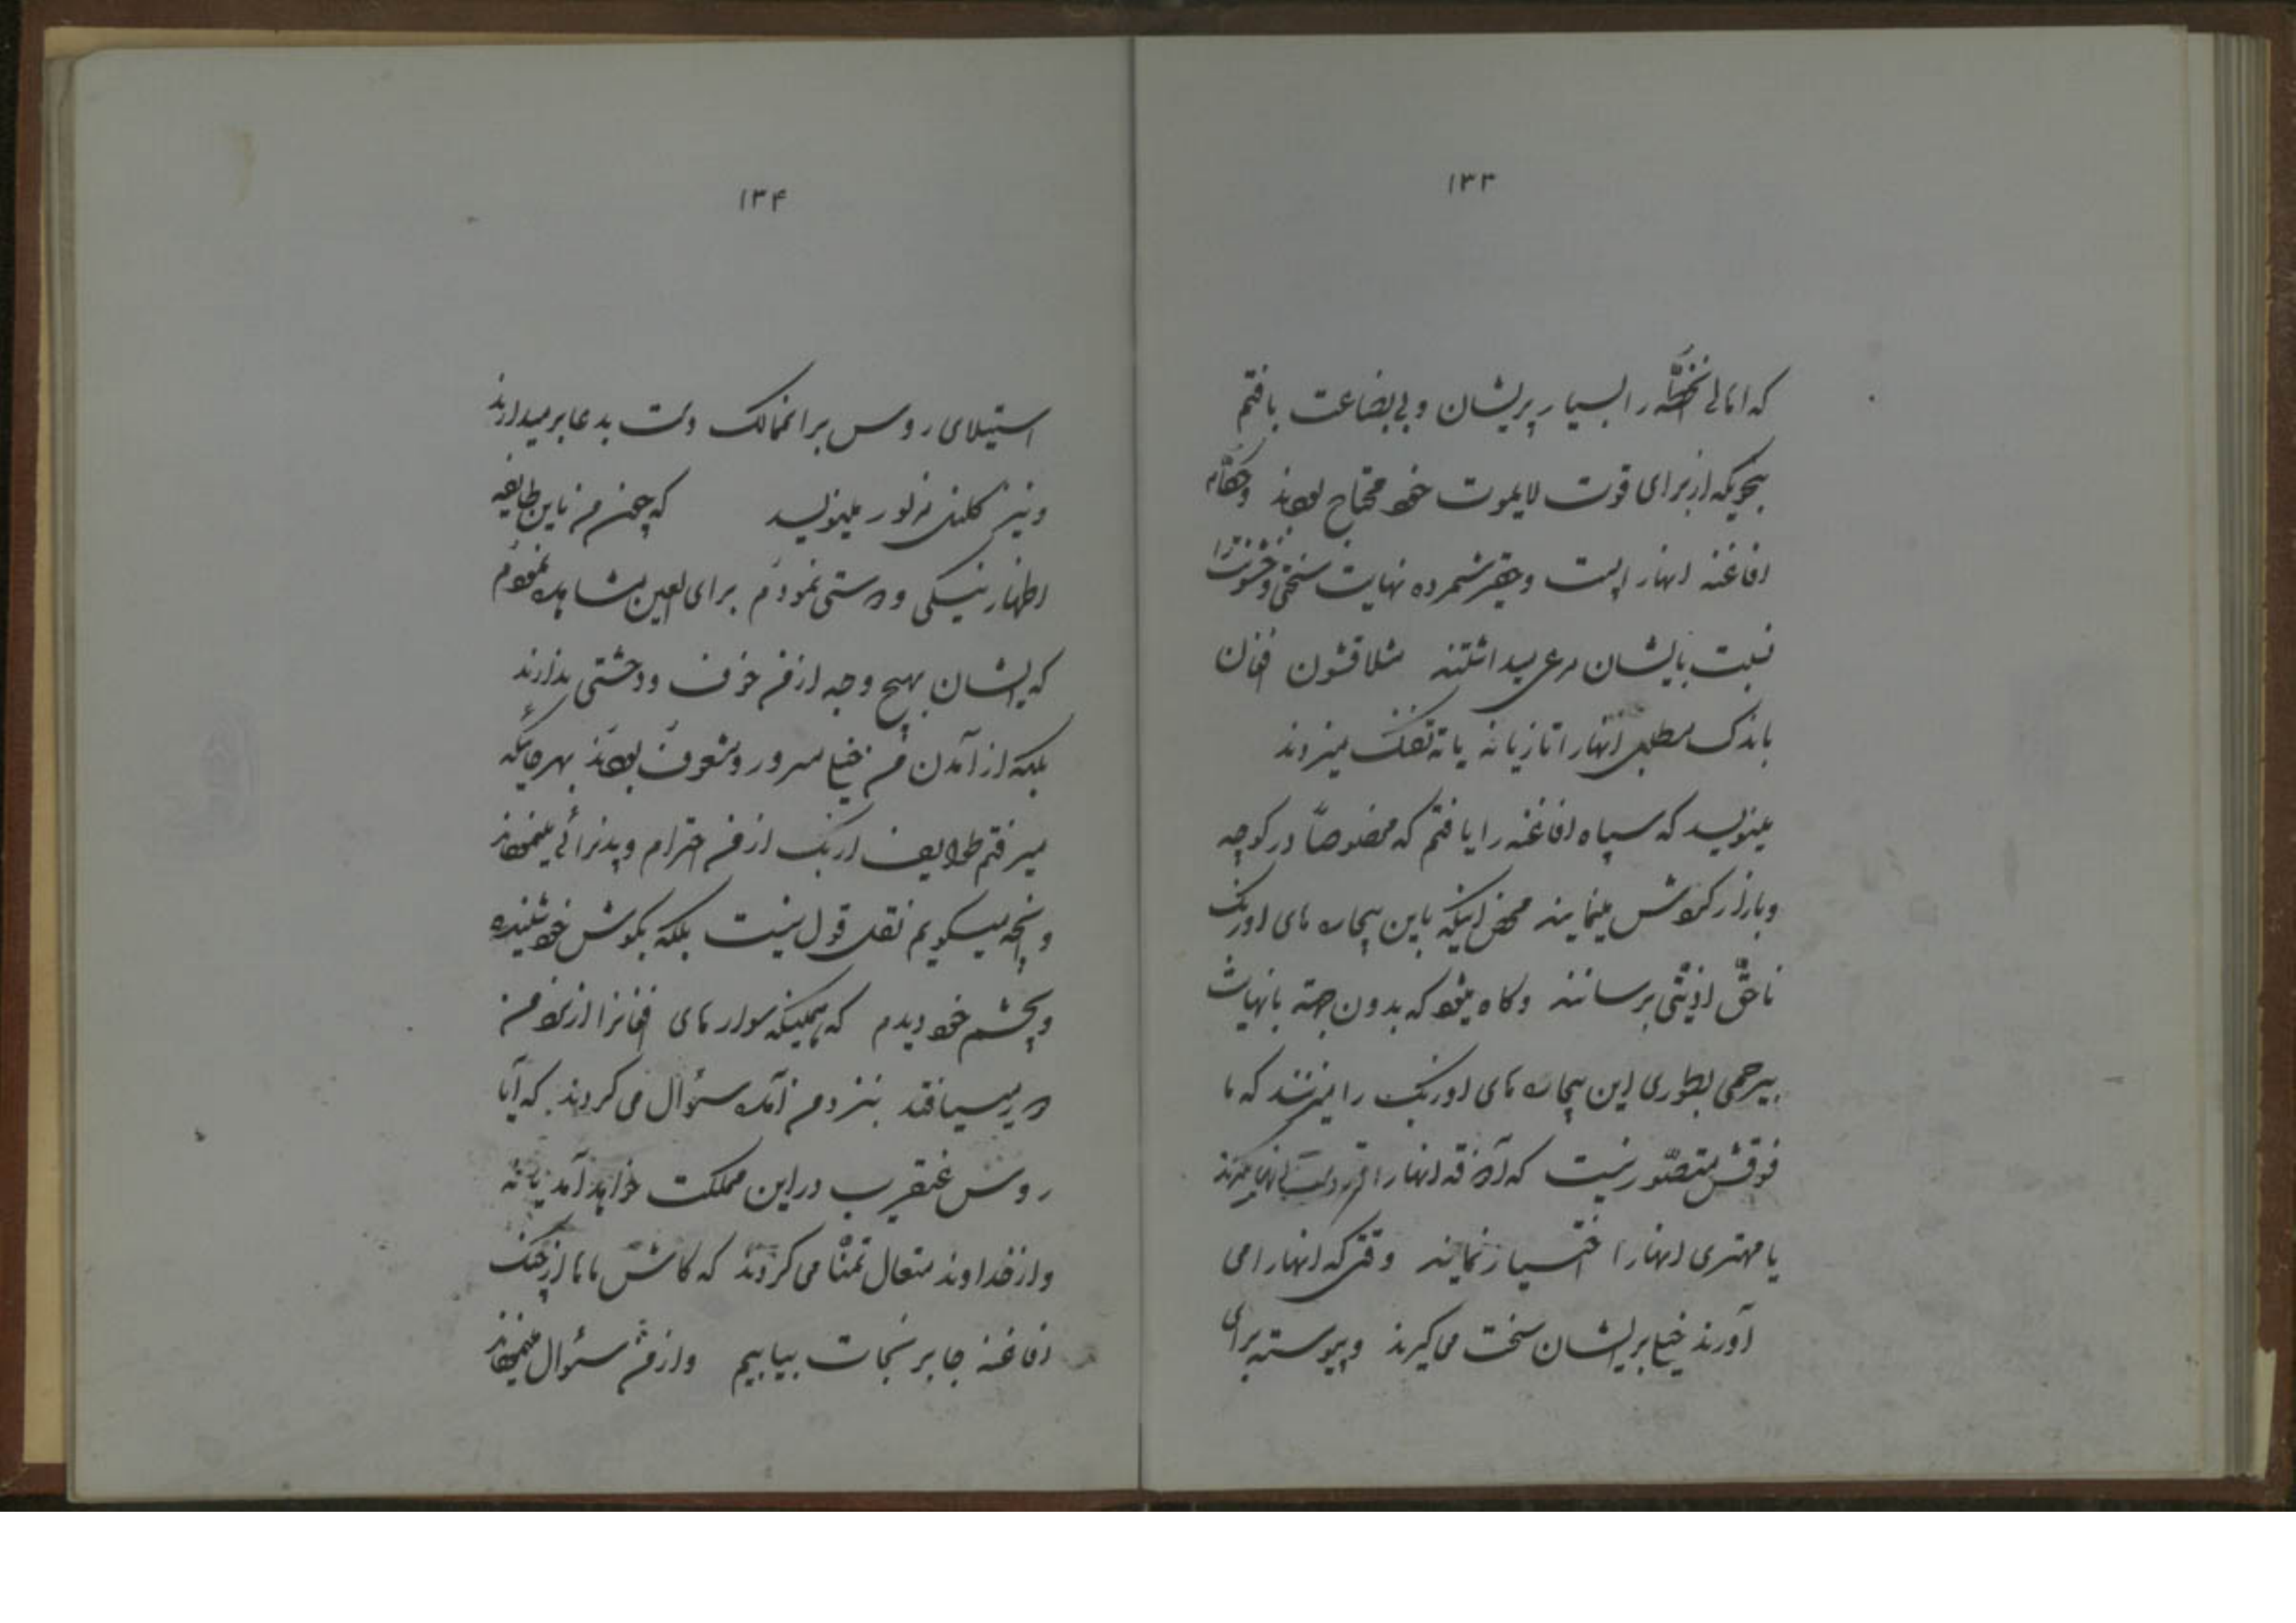 ۱۳۳
که اهالی آنخطّه را بسیار پریشان و بی بضاعت یافتم
بنحویکه از برای قوت لایموت خود محتاج بودند و حکّام
افاغنه انها را پست و حقیر شمرده نهایت سختی و خشونت را
نسبت بایشان مرعی میداشتند مثلا قشون افغان
باندک مطلبی انها را تازیانه یا ته تفنک میزدند
مینویسد که سپاه افاغنه را یافتم که مخصوصاً در کوچه
و بازار کردش مینمایند محض اینکه باین بیچاره های اوزبک
ناحقّ اذیّتی برسانند و کاه میشود که بدون جهة بانهایت
بیرحمی بطوری این بیچاره های اوزبک را میزنند که ما
فوقش متصّور نیست که آذوقه انها را
یا مهتری انها را اختیار نمایند وقتی که انها را می
آورند خیلی بر ایشان سخت می کیرند و پیوسته برای
۱۳۴
استیلای روس بر انممالک دست بدعا برمیدارند
و نیز کلنل مزبور مینویسد که چون من باین طایفه
اظهار نیکی و درستی نمودم برای العین مشاهده نمودم
که ایشان بهیچ وجه از من خوف و وحشتی ندارند
بلکه از آمدن من خیلی مسرور و مشعوف بودند بهر جائیکه
میرفتم طوایف ازبک از من احترام و پذیرائی مینمودند
و انچه میکویم نقل قول نیست بلکه بکوش خود شنیده
و بچشم خود دیدم که همینکه سوار های افغانرا از نزد من
دور میافتند بنزد من آمده سئوال می کردند که آیا
روس عنقریب در این مملکت خواهد آمد یا نه
و از خداوند متعال تمنّا می کردند که کاش ماها از چنک
افاغنه جابر نجات بیابیم و از من سئوال مینمودند